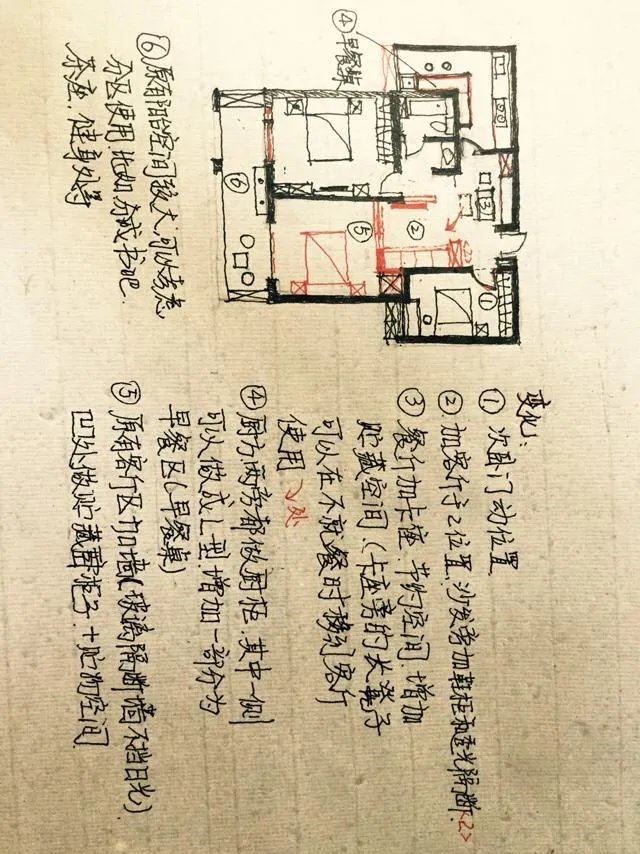 ④ 早餐桌
①
②
③
<2>
⑤
⑥
变化:
① 次卧门动位置
② 加客厅于2位置,沙发旁加鞋柜和透光隔断<2>
③ 餐厅加卡座 节约空间.增加
贮藏空间(卡座旁的大凳子
可以在不就餐时移到客厅
使用 处
④ 厨房两旁都做厨柜.其中一侧
可以做成L型,增加一部分为
早餐区(早餐桌)
⑤ 原有客厅区加墙(玻璃隔断墙不挡日光)
凹处做贮藏柜子+贮物空间
⑥ 原有阳台空间较大,可以考虑
分区使用.比如 分成书吧.
茶座.健身处等